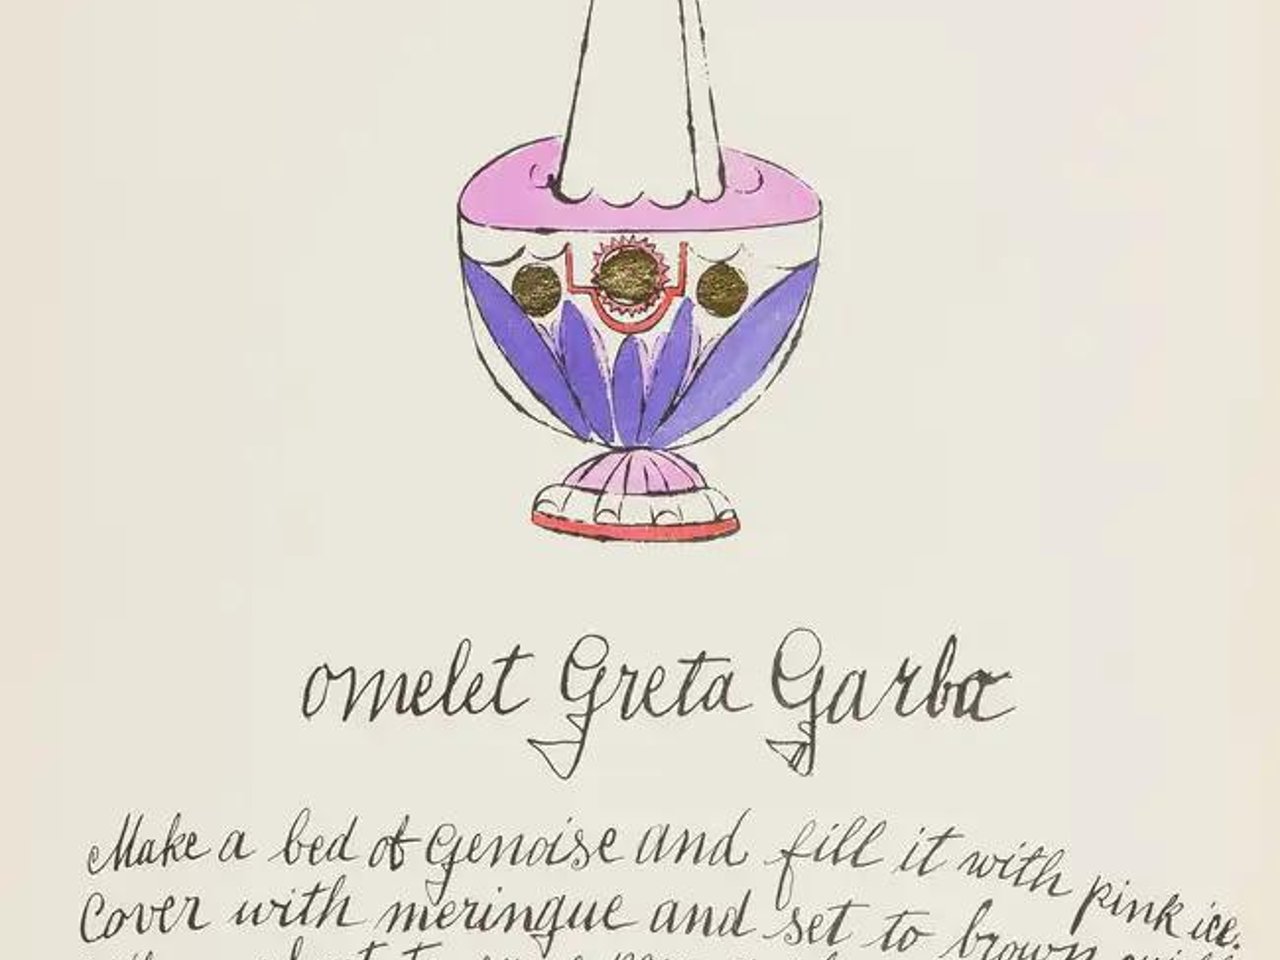 omelet Greta Garbo
Make a bed of Genoise and fill it with pink ice.
Cover with meringue and set to brown